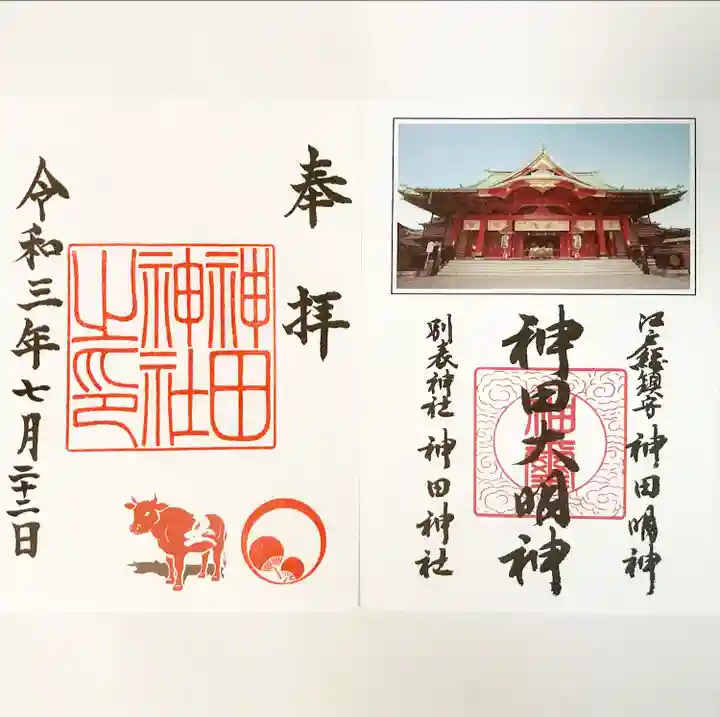 奉拝
神田神社之印
令和三年七月二十二日
江戸総鎮守 神田明神
神田大明神
神璽
別表神社 神田神社